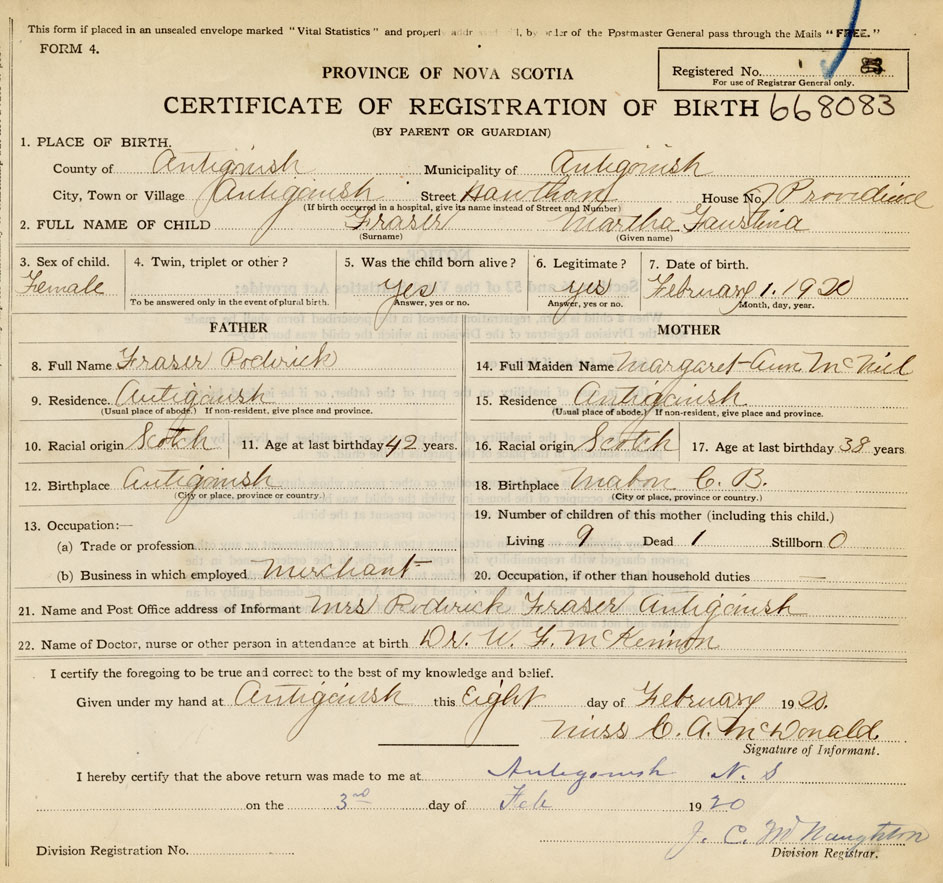 This form if placed in an unsealed envelope marked "Vital Statistics" and properly addressed, by order of the Postmaster General pass through the Mails "FREE."
FORM 4.
Registered No.
For use of Registrar General only.
PROVINCE OF NOVA SCOTIA
CERTIFICATE OF REGISTRATION OF BIRTH 668083
(BY PARENT OR GUARDIAN)
1. PLACE OF BIRTH.
County of Antigonish Municipality of Antigonish
City, Town or Village Antigonish Street Hawthorn House No. Providence
(If birth occurred in a hospital, give its name instead of Street and Number)
2. FULL NAME OF CHILD Fraser Martha Faustina
(Surname) (Given name)
3. Sex of child. 4. Twin, triplet or other? 5. Was the child born alive? 6. Legitimate? 7. Date of birth.
Female Yes yes February 1. 1920
To be answered only in the event of plural birth. Answer, yes or no. Answer, yes or no. Month, day, year.
FATHER MOTHER
8. Full Name Fraser Roderick 14. Full Maiden Name Margaret-Ann McNeil
9. Residence. Antigonish 15. Residence Antigonish
(Usual place of abode.) If non-resident, give place and province. (Usual place of abode.) If non-resident, give place and province.
10. Racial origin Scotch 11. Age at last birthday 42 years. 16. Racial origin Scotch 17. Age at last birthday 38 years
12. Birthplace Antigonish 18. Birthplace Mabou C. B.
(City or place, province or country.) (City or place, province or country.)
13. Occupation:— 19. Number of children of this mother (including this child.)
(a) Trade or profession Living 9 Dead 1 Stillborn 0
(b) Business in which employed Merchant 20. Occupation, if other than household duties —
21. Name and Post Office address of Informant Mrs Roderick Fraser Antigonish
22. Name of Doctor, nurse or other person in attendance at birth Dr. W. F. McKinnon
I certify the foregoing to be true and correct to the best of my knowledge and belief.
Given under my hand at Antigonish this Eight day of February 1920.
Miss C. A. McDonald
Signature of Informant.
I hereby certify that the above return was made to me at Antigonish N. S
on the 3rd day of Feb 1920
J. C. McNaughton
Division Registration No. Division Registrar.